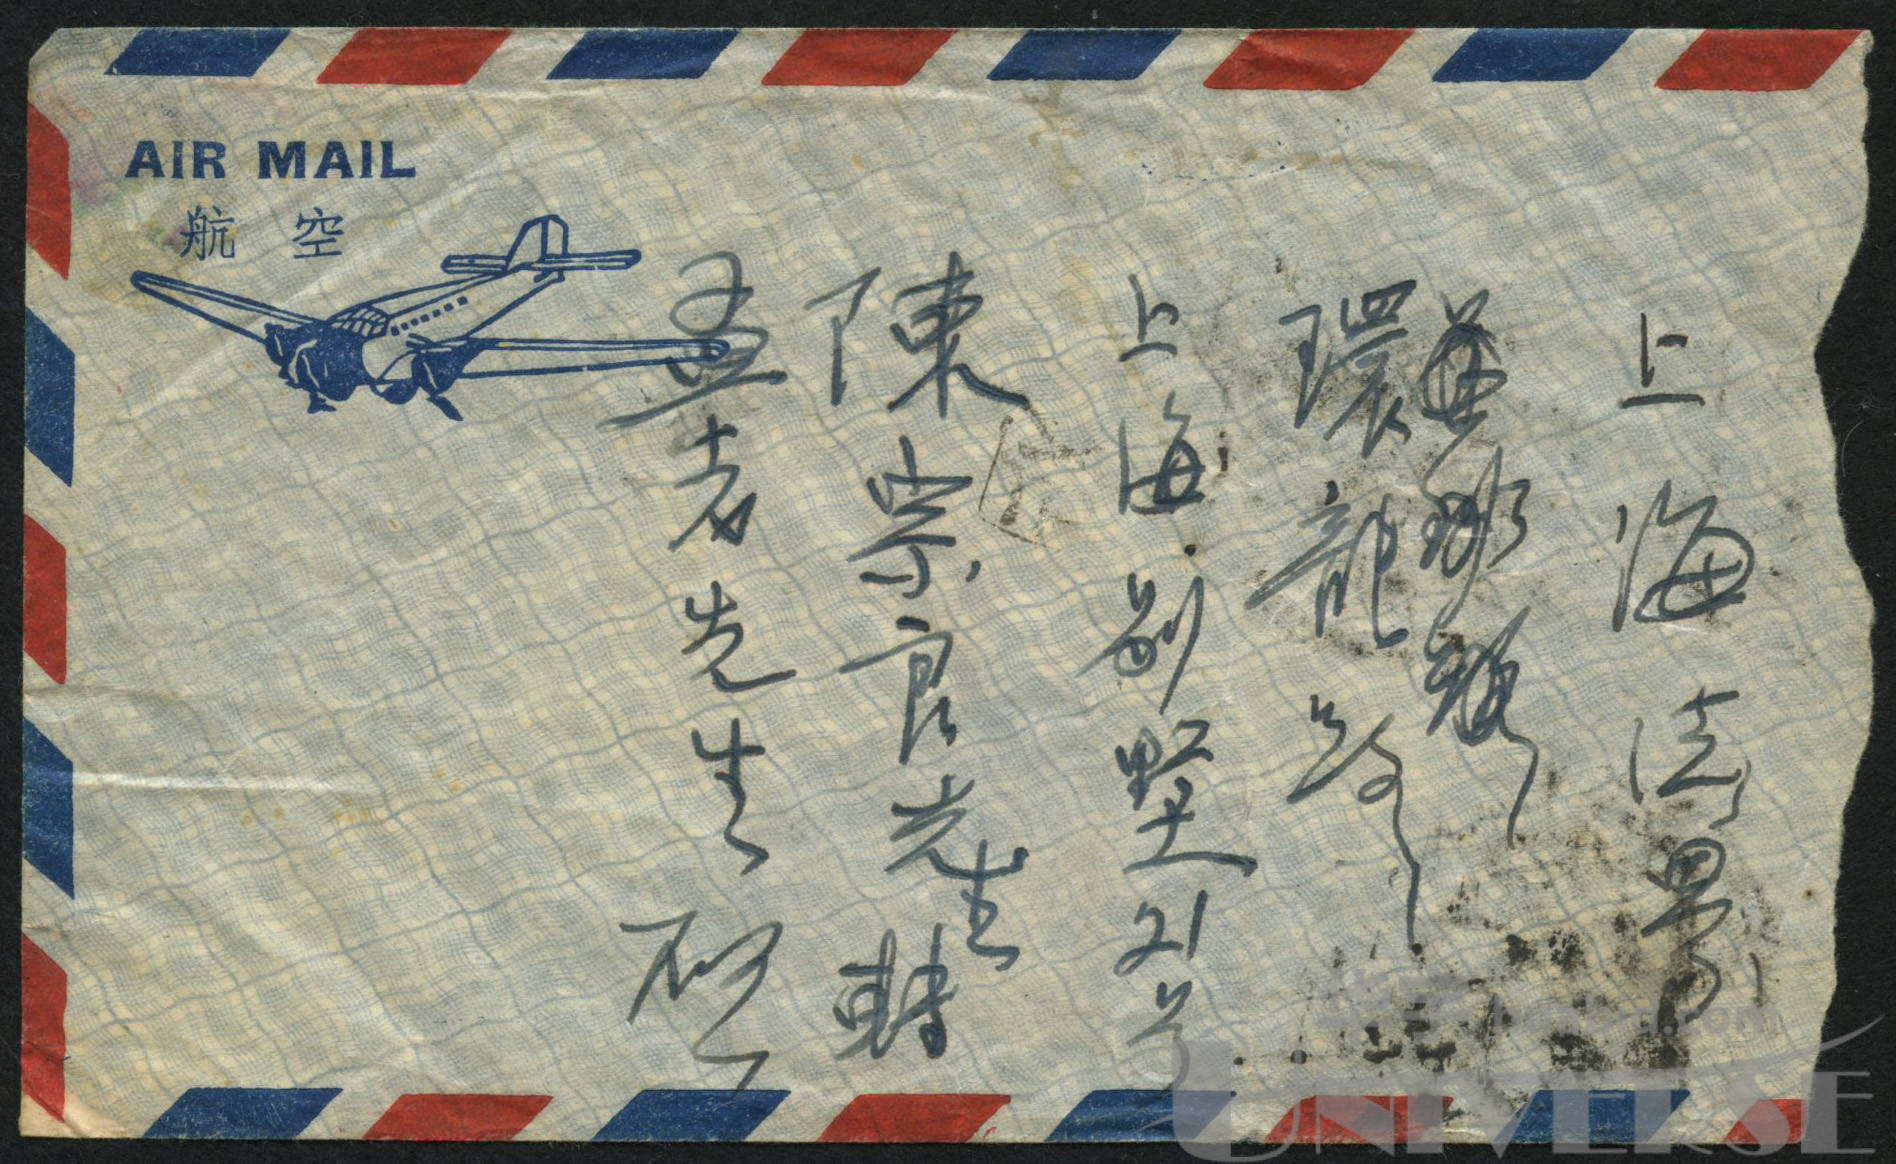 AIR MAIL
航空
上海法界
環龍路
上海別墅21号
陳宗良先生轉
孟者先生啟
UNIVERSE